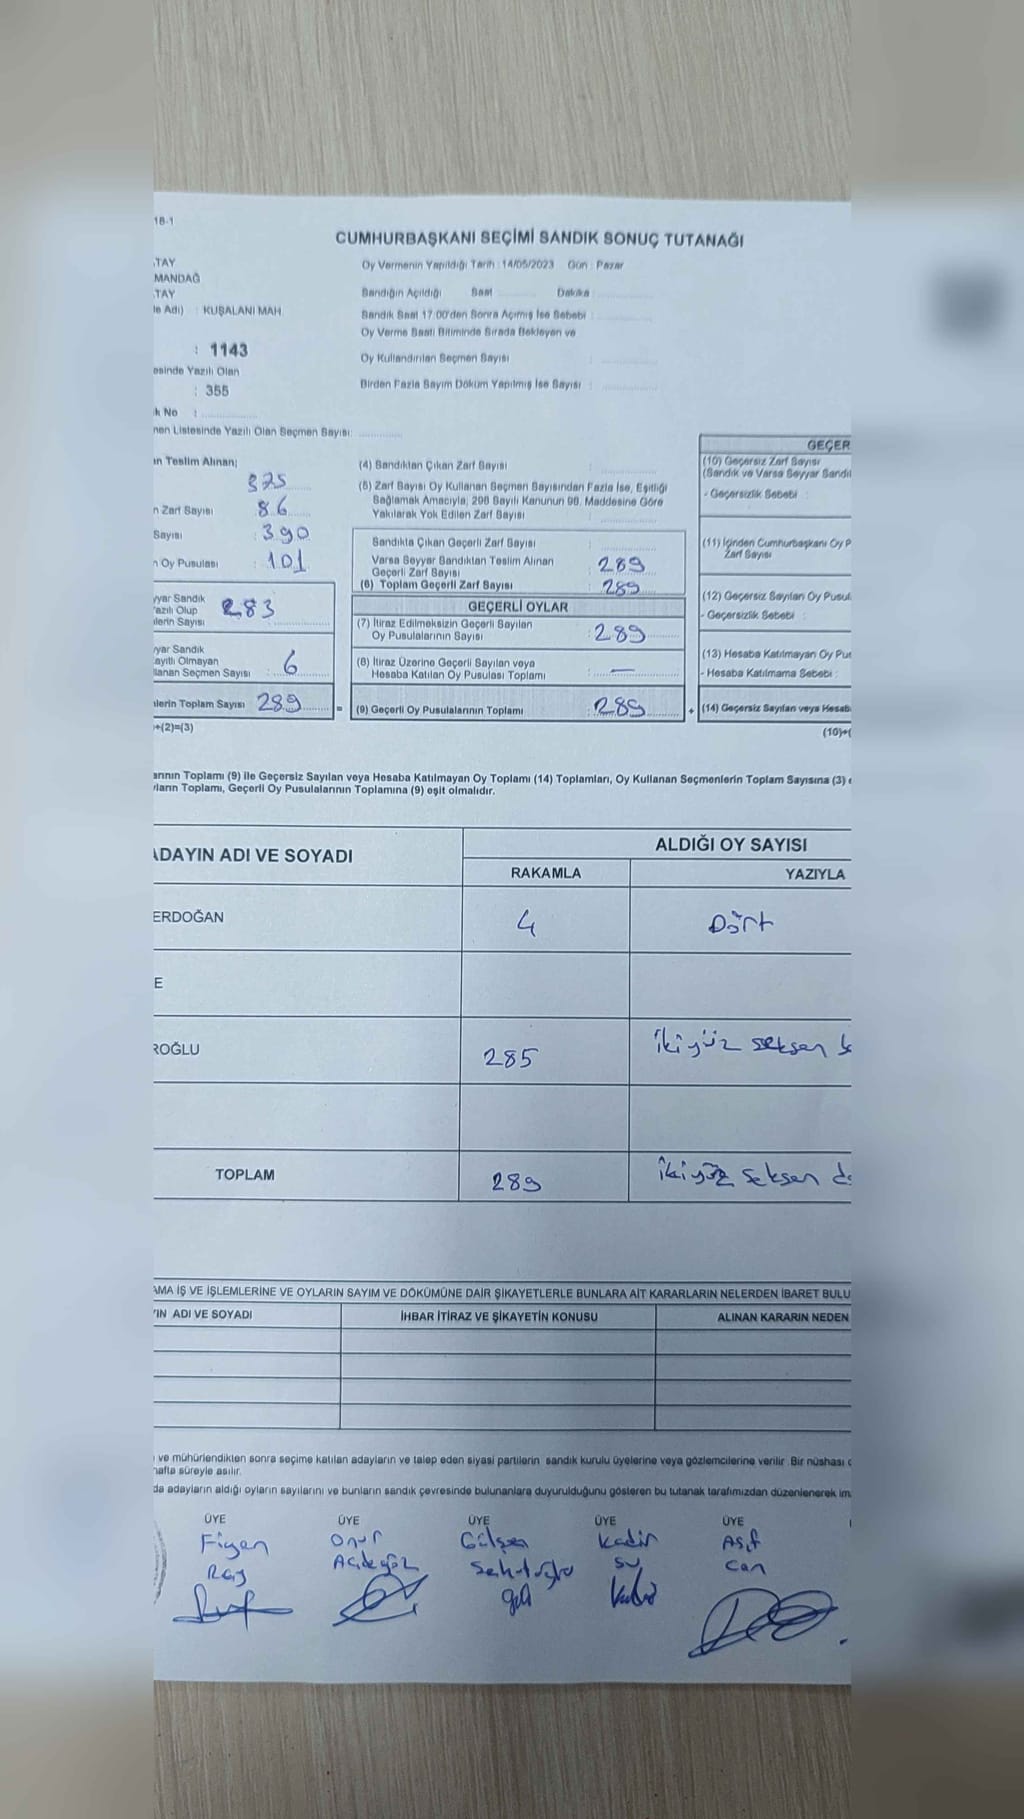 18-1
CUMHURBAŞKANI SEÇİMİ SANDIK SONUÇ TUTANAĞI
.TAY
MANDAĞ
.TAY
le Adı) : KUŞALANI MAH.
: 1143
esinde Yazılı Olan
: 355
k No :
men Listesinde Yazılı Olan Seçmen Sayısı:
Oy Vermenin Yapıldığı Tarih : 14/05/2023 Gün : Pazar
Sandığın Açıldığı Saat Dakika
Sandık Saat 17:00'den Sonra Açılmış İse Sebebi :
Oy Verme Saati Bitiminde Sırada Bekleyen ve
Oy Kullandırılan Seçmen Sayısı :
Birden Fazla Sayım Döküm Yapılmış İse Sayısı :
an Teslim Alınan;
375
n Zarf Sayısı 86
Sayısı : 390
n Oy Pusulası : 101
yyar Sandık
Yazılı Olup
nlerin Sayısı 283
yyar Sandık
ayıtlı Olmayan
llanan Seçmen Sayısı : 6
nlerin Toplam Sayısı 289 =
)+(2)=(3)
(4) Sandıktan Çıkan Zarf Sayısı :
(5) Zarf Sayısı Oy Kullanan Seçmen Sayısından Fazla İse, Eşitliği
Sağlamak Amacıyla, 298 Sayılı Kanunun 98. Maddesine Göre
Yakılarak Yok Edilen Zarf Sayısı :
Sandıkta Çıkan Geçerli Zarf Sayısı :
Varsa Seyyar Sandıktan Teslim Alınan
Geçerli Zarf Sayısı : 289
(6) Toplam Geçerli Zarf Sayısı : 289
GEÇERLİ OYLAR
(7) İtiraz Edilmeksizin Geçerli Sayılan
Oy Pusulalarının Sayısı : 289
(8) İtiraz Üzerine Geçerli Sayılan veya
Hesaba Katılan Oy Pusulası Toplamı : —
(9) Geçerli Oy Pusulalarının Toplamı : 289 +
GEÇER
(10) Geçersiz Zarf Sayısı
(Sandık ve Varsa Seyyar Sandı
- Geçersizlik Sebebi :
(11) İçinden Cumhurbaşkanı Oy P
Zarf Sayısı
(12) Geçersiz Sayılan Oy Pusul
- Geçersizlik Sebebi :
(13) Hesaba Katılmayan Oy Pus
- Hesaba Katılmama Sebebi :
(14) Geçersiz Sayılan veya Hesab
(10)+(
arının Toplamı (9) ile Geçersiz Sayılan veya Hesaba Katılmayan Oy Toplamı (14) Toplamları, Oy Kullanan Seçmenlerin Toplam Sayısına (3) e
yların Toplamı, Geçerli Oy Pusulalarının Toplamına (9) eşit olmalıdır.
ADAYIN ADI VE SOYADI
ALDIĞI OY SAYISI
RAKAMLA YAZIYLA
ERDOĞAN 4 Dört
E
ROĞLU 285 ikiyüz seksen
TOPLAM 289 ikiyüz seksen
AMA İŞ VE İŞLEMLERİNE VE OYLARIN SAYIM VE DÖKÜMÜNE DAİR ŞİKAYETLERLE BUNLARA AİT KARARLARIN NELERDEN İBARET BULU
'IN ADI VE SOYADI İHBAR İTİRAZ VE ŞİKAYETİN KONUSU ALINAN KARARIN NEDEN
ve mühürlendikten sonra seçime katılan adayların ve talep eden siyasi partilerin sandık kurulu üyelerine veya gözlemcilerine verilir. Bir nüshası
hafta süreyle asılır.
da adayların aldığı oyların sayılarını ve bunların sandık çevresinde bulunanlara duyurulduğunu gösteren bu tutanak tarafımızdan düzenlenerek im
ÜYE ÜYE ÜYE ÜYE ÜYE
Figen Onur Gülşen Kadir Asıf
Açıkgöz Su Can